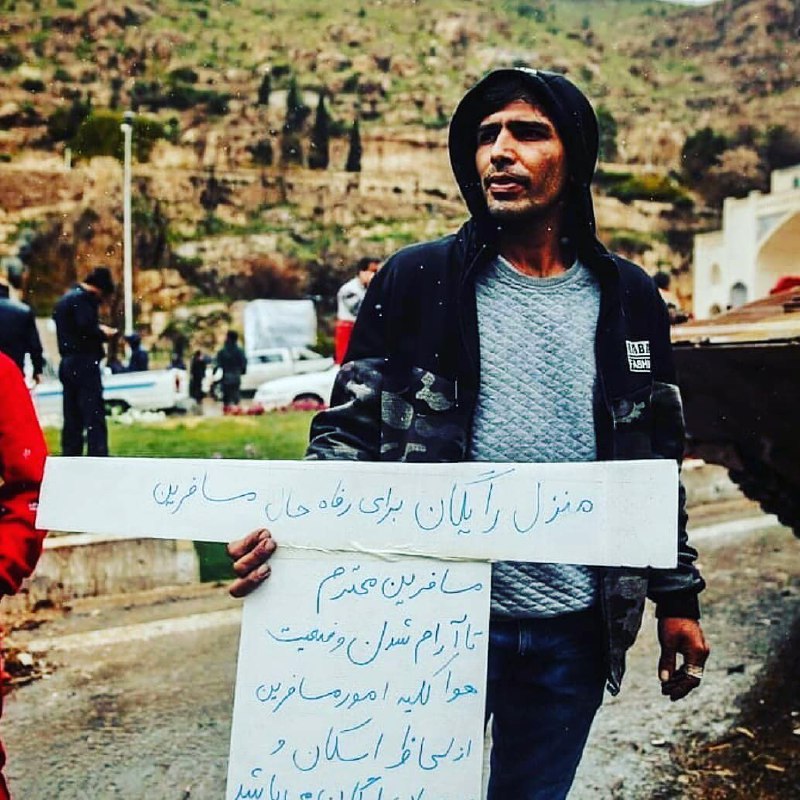 منزل رایگان برای رفاه حال مسافرین
مسافرین محترم
تا آرام شدن وضعیت
هوا کلیه امور مسافرین
از لحاظ اسکان و
رایگان می باشد
FASHI